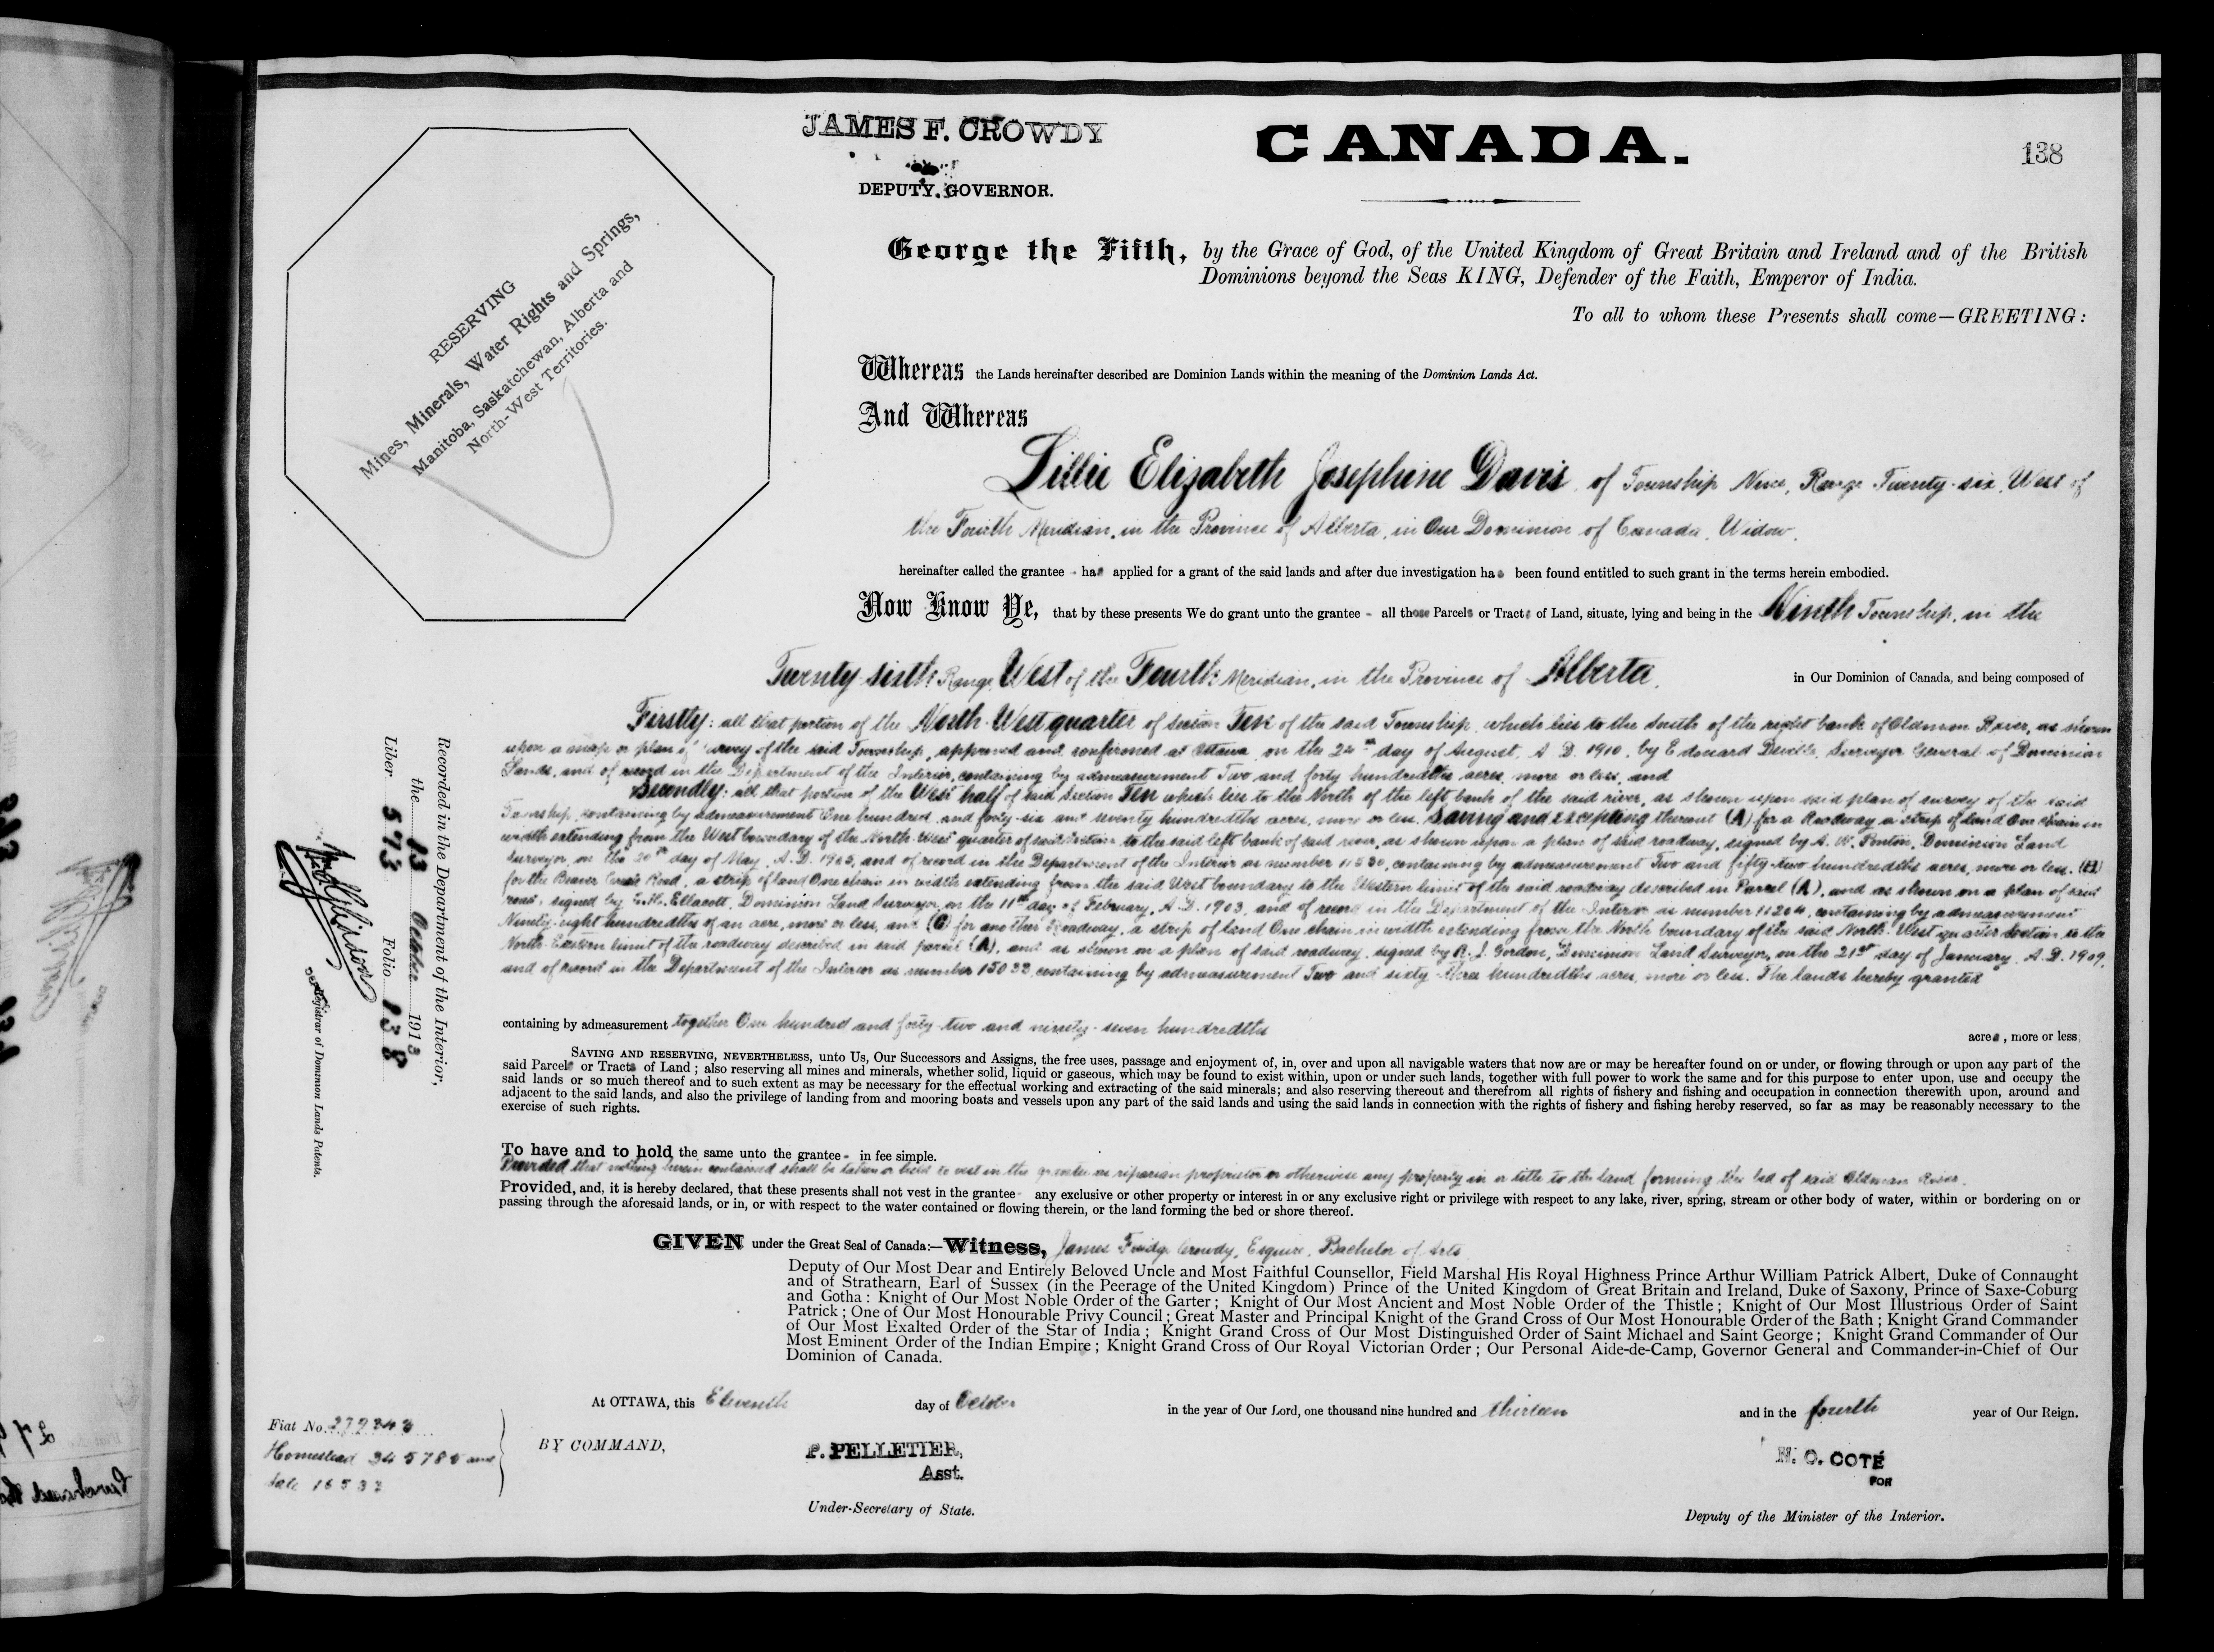 JAMES F. CROWDY
DEPUTY GOVERNOR.
CANADA.
138
RESERVING
Mines, Minerals, Water Rights and Springs,
Manitoba, Saskatchewan, Alberta and
North-West Territories.
George the Fifth, by the Grace of God, of the United Kingdom of Great Britain and Ireland and of the British
Dominions beyond the Seas KING, Defender of the Faith, Emperor of India.
To all to whom these Presents shall come—GREETING:
Whereas the Lands hereinafter described are Dominion Lands within the meaning of the Dominion Lands Act.
And Whereas
Lillie Elizabeth Josephine Davis of Township Nine, Range Twenty-six, West of
the Fourth Meridian, in the Province of Alberta, in Our Dominion of Canada, Widow,
hereinafter called the grantee - has applied for a grant of the said lands and after due investigation has been found entitled to such grant in the terms herein embodied.
Now Know Ye, that by these presents We do grant unto the grantee - all those Parcels or Tracts of Land, situate, lying and being in the Ninth Township, in the
Twenty-sixth Range West of the Fourth Meridian, in the Province of Alberta, in Our Dominion of Canada, and being composed of
Firstly: all that portion of the North-West quarter of section Ten of the said Township, which lies to the South of the right bank of Oldman River, as shown
upon a map or plan of survey of the said Township, approved and confirmed at Ottawa, on the 24th day of August, A.D. 1910, by Edouard Deville, Surveyor General of Dominion
Lands, and of record in the Department of the Interior, containing by admeasurement Two and forty hundredths acres, more or less, and
Secondly: all that portion of the West half of said Section Ten which lies to the North of the left bank of the said river, as shown upon said plan of survey of the said
Township, containing by admeasurement One hundred and forty-six and seventy hundredths acres, more or less, Saving and Excepting thereout (A) for a Roadway a strip of land One chain in
width extending from the West boundary of the North-West quarter of said Section to the said left bank of said river, as shown upon a plan of said roadway, signed by A. W. Ponton, Dominion Land
Surveyor, on the 20th day of May, A.D. 1903, and of record in the Department of the Interior as number 11230, containing by admeasurement Two and fifty-two hundredths acres, more or less, (B)
for the Beaver Creek Road, a strip of land One chain in width extending from the said West boundary to the Western limit of the said roadway described in Parcel (A), and as shown on a plan of said
road, signed by Ellacott, Dominion Land Surveyor, on the 11th day of February, A.D. 1903, and of record in the Department of the Interior as number 11204, containing by admeasurement
Ninety-eight hundredths of an acre, more or less, and (C) for another Roadway, a strip of land One chain in width extending from the North boundary of the said North-West quarter section to the
North-Eastern limit of the roadway described in said parcel (A), and as shown on a plan of said roadway, signed by R. J. Gordon, Dominion Land Surveyor, on the 21st day of January, A.D. 1909,
and of record in the Department of the Interior as number 15033, containing by admeasurement Two and sixty-three hundredths acres, more or less. The lands hereby granted
containing by admeasurement together One hundred and forty-two and ninety-seven hundredths acres, more or less;
SAVING AND RESERVING, NEVERTHELESS, unto Us, Our Successors and Assigns, the free uses, passage and enjoyment of, in, over and upon all navigable waters that now are or may be hereafter found on or under, or flowing through or upon any part of the
said Parcels or Tracts of Land; also reserving all mines and minerals, whether solid, liquid or gaseous, which may be found to exist within, upon or under such lands, together with full power to work the same and for this purpose to enter upon, use and occupy the
said lands or so much thereof and to such extent as may be necessary for the effectual working and extracting of the said minerals; and also reserving thereout and therefrom all rights of fishery and fishing and occupation in connection therewith upon, around and
adjacent to the said lands, and also the privilege of landing from and mooring boats and vessels upon any part of the said lands and using the said lands in connection with the rights of fishery and fishing hereby reserved, so far as may be reasonably necessary to the
exercise of such rights.
To have and to hold the same unto the grantee - in fee simple.
Provided that nothing herein contained shall be taken or held to vest in the grantee as riparian proprietor or otherwise any property in or title to the land forming the bed of said Oldman River.
Provided, and, it is hereby declared, that these presents shall not vest in the grantee - any exclusive or other property or interest in or any exclusive right or privilege with respect to any lake, river, spring, stream or other body of water, within or bordering on or
passing through the aforesaid lands, or in, or with respect to the water contained or flowing therein, or the land forming the bed or shore thereof.
GIVEN under the Great Seal of Canada:—Witness, James Crowdy, Esquire, Bachelor of Arts
Deputy of Our Most Dear and Entirely Beloved Uncle and Most Faithful Counsellor, Field Marshal His Royal Highness Prince Arthur William Patrick Albert, Duke of Connaught
and of Strathearn, Earl of Sussex (in the Peerage of the United Kingdom) Prince of the United Kingdom of Great Britain and Ireland, Duke of Saxony, Prince of Saxe-Coburg
and Gotha: Knight of Our Most Noble Order of the Garter; Knight of Our Most Ancient and Most Noble Order of the Thistle; Knight of Our Most Illustrious Order of Saint
Patrick; One of Our Most Honourable Privy Council; Great Master and Principal Knight of the Grand Cross of Our Most Honourable Order of the Bath; Knight Grand Commander
of Our Most Exalted Order of the Star of India; Knight Grand Cross of Our Most Distinguished Order of Saint Michael and Saint George; Knight Grand Commander of Our
Most Eminent Order of the Indian Empire; Knight Grand Cross of Our Royal Victorian Order; Our Personal Aide-de-Camp, Governor General and Commander-in-Chief of Our
Dominion of Canada.
At OTTAWA, this Eleventh day of October in the year of Our Lord, one thousand nine hundred and thirteen and in the fourth year of Our Reign.
BY COMMAND,
P. PELLETIER,
Asst.
Under-Secretary of State.
N. O. COTÉ
FOR
Deputy of the Minister of the Interior.
Fiat No. 279343
Homestead 345785 and
Sale 16533
Recorded in the Department of the Interior,
the 13 October 1913
Liber 573 Folio 138
Registrar of Dominion Lands Patents.